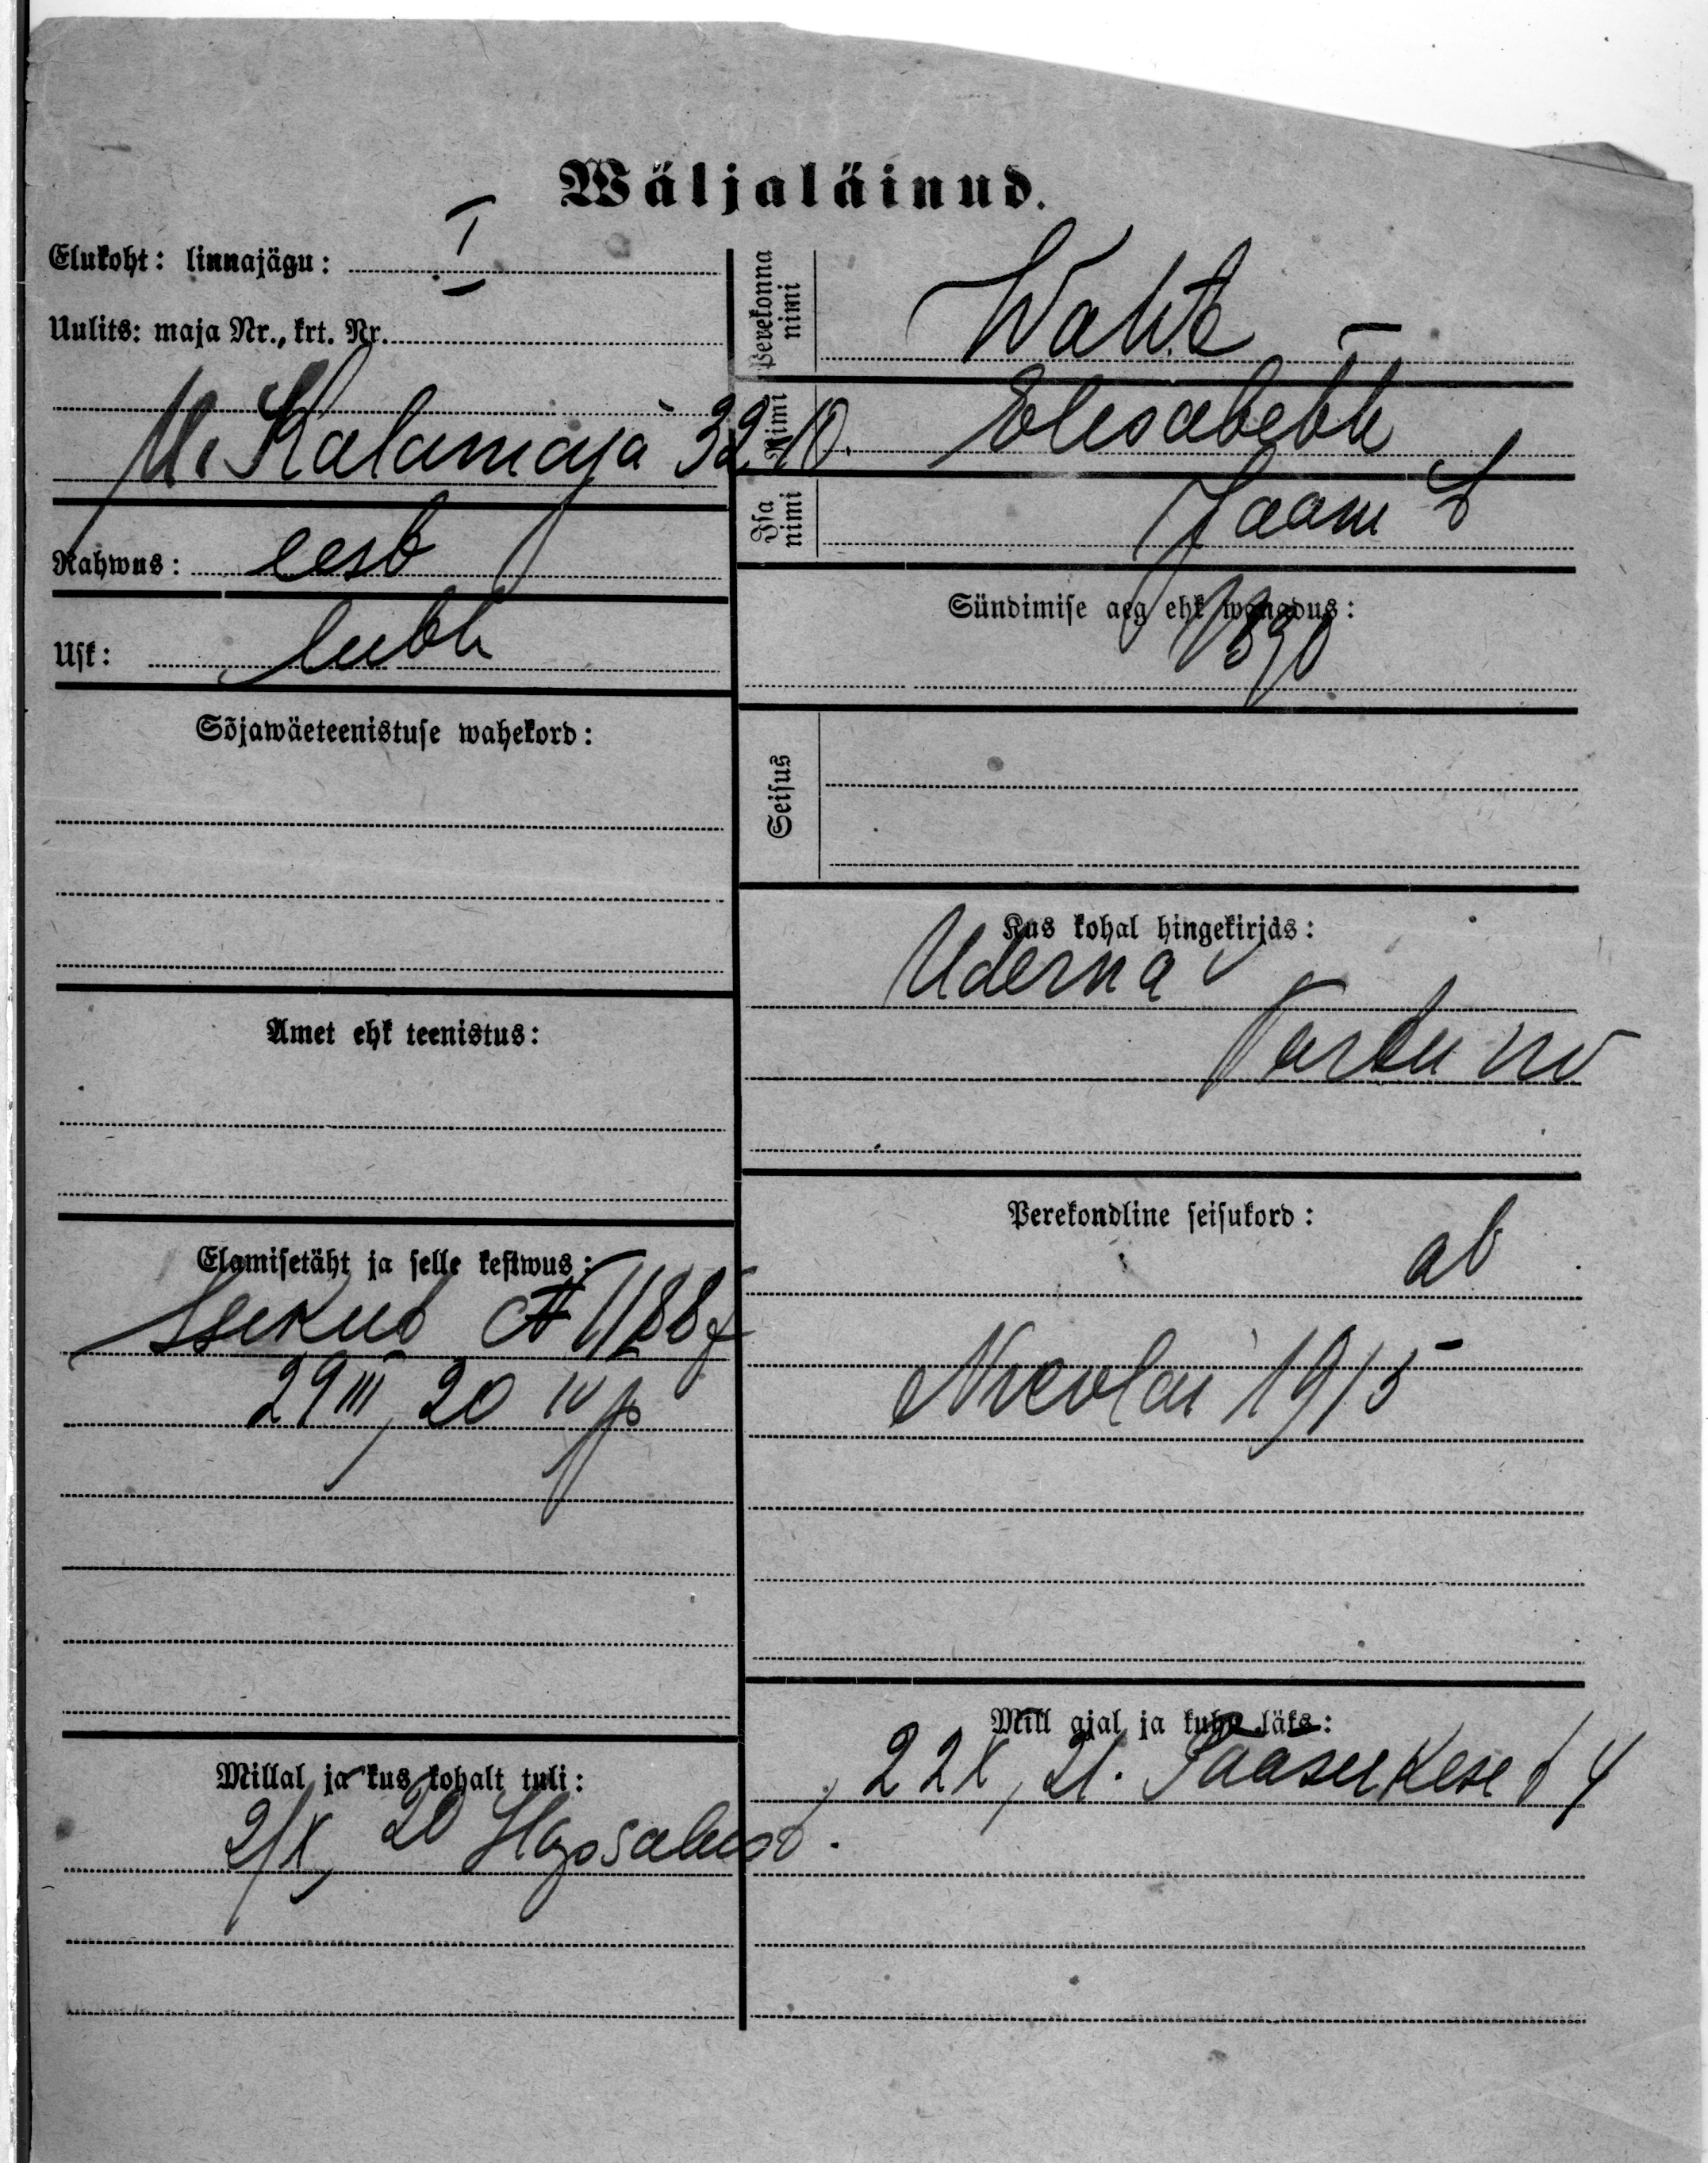 Wäljaläinud.
Elukoht: linnajägu: I
Uulits: maja Nr., krt. Nr.
Kalamaja 32-10.
Rahwus: eest
Usk: luth
Sõjawäeteenistuse wahekord:
Amet ehk teenistus:
Elamisetäht ja selle kestwus:
29 III, 20
Millal ja kus kohalt tuli:
2/X, 20 Hapsalust.
Perekonna nimi
Nimi Elisabeth
Isa nimi Jaani t
Sündimise aeg ehk wanadus:
1890
Seisus
Kus kohal hingekirjas:
Uderna
Tartu
Perekondline seisukord:
ab
Nicolai 1915
Mill ajal ja kuhu läks:
22 X, 21. Pääsukese t 4